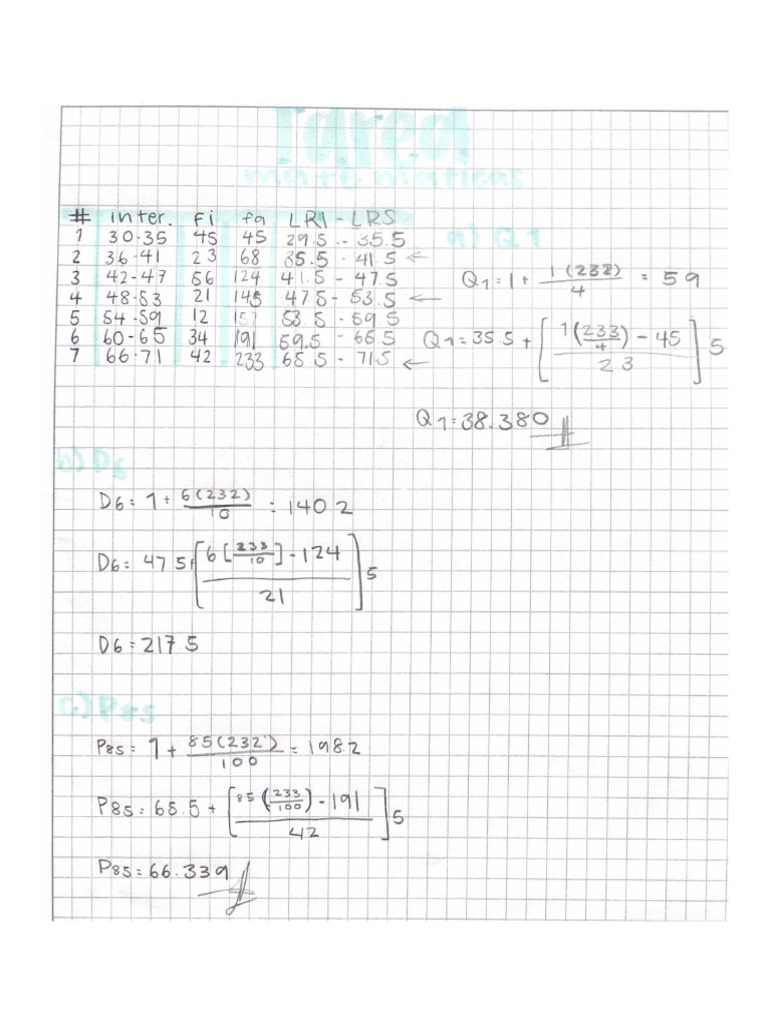 Tarea
matematicas
# inter. fi fa LRI - LRS
1 30-35 45 45 29.5 -- 35.5
2 36-41 23 68 35.5 - 41.5 ←
3 42-47 56 124 41.5 - 47.5
4 48-53 21 145 47.5 - 53.5 ←
5 54-59 12 157 53.5 - 59.5
6 60-65 34 191 59.5 - 66.5
7 66-71 42 233 65.5 - 71.5 ←
a) Q1
Q1 = 1 + 1(232)/4 = 59
Q1 = 35.5 + [1(233/4) - 45 / 23] 5
Q1 = 38.380
b) D6
D6 = 1 + 6(232)/10 = 140.2
D6 = 47.5 + [6[233/10] - 124 / 21] 5
D6 = 217.5
c) P85
P85 = 1 + 85(232)/100 = 198.2
P85 = 65.5 + [85(233/100) - 191 / 42] 5
P85 = 66.339